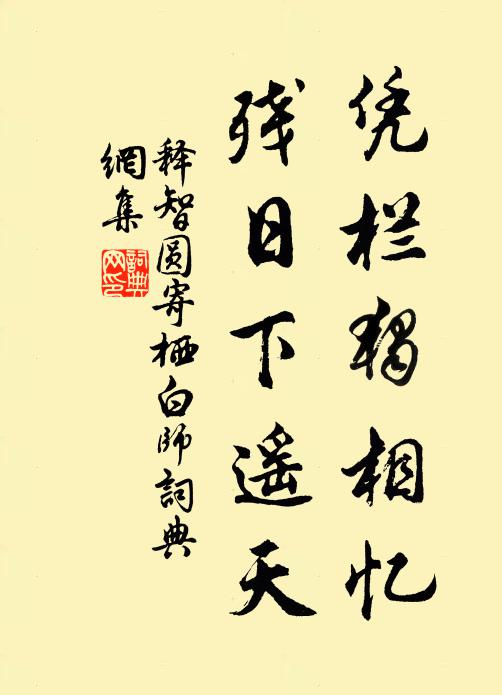 凭栏独相忆
残日下遥天
释智圆寄栖白师詞典
網集
詞典
网印